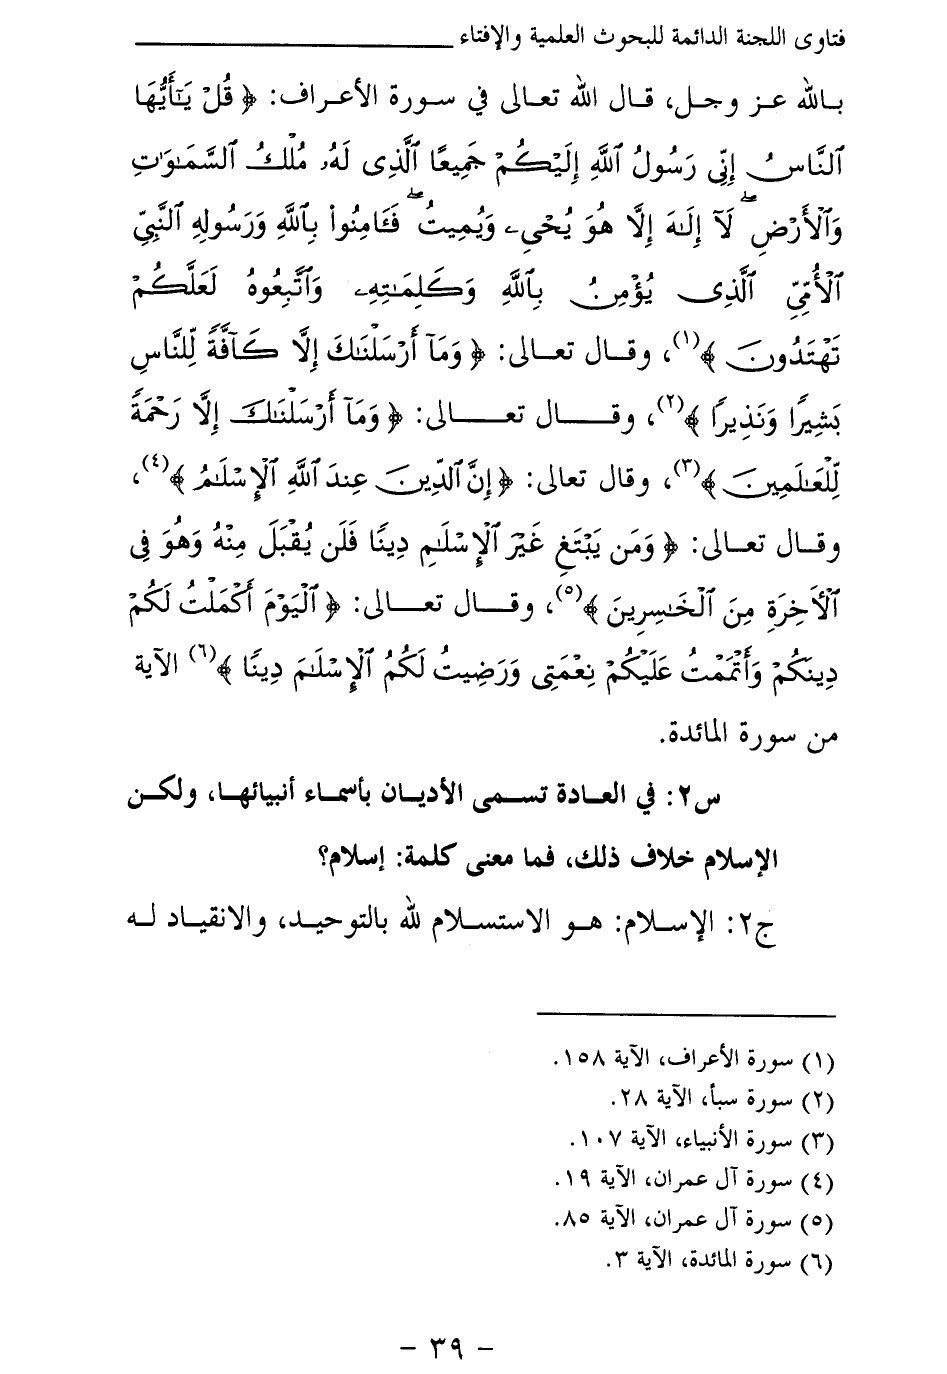 فتاوى اللجنة الدائمة للبحوث العلمية والإفتاء
بالله عز وجل، قال الله تعالى في سورة الأعراف: ﴿ قُلْ يَـٰٓأَيُّهَا
ٱلنَّاسُ إِنِّى رَسُولُ ٱللَّهِ إِلَيْكُمْ جَمِيعًا ٱلَّذِى لَهُۥ مُلْكُ ٱلسَّمَـٰوَٰتِ
وَٱلْأَرْضِ ۖ لَآ إِلَـٰهَ إِلَّا هُوَ يُحْىِۦ وَيُمِيتُ ۖ فَـَٔامِنُوا۟ بِٱللَّهِ وَرَسُولِهِ ٱلنَّبِىِّ
ٱلْأُمِّىِّ ٱلَّذِى يُؤْمِنُ بِٱللَّهِ وَكَلِمَـٰتِهِۦ وَٱتَّبِعُوهُ لَعَلَّكُمْ
تَهْتَدُونَ ﴾(١)، وقال تعالى: ﴿ وَمَآ أَرْسَلْنَـٰكَ إِلَّا كَآفَّةً لِّلنَّاسِ
بَشِيرًا وَنَذِيرًا ﴾(٢)، وقال تعالى: ﴿ وَمَآ أَرْسَلْنَـٰكَ إِلَّا رَحْمَةً
لِّلْعَـٰلَمِينَ ﴾(٣)، وقال تعالى: ﴿ إِنَّ ٱلدِّينَ عِندَ ٱللَّهِ ٱلْإِسْلَـٰمُ ﴾(٤)،
وقال تعالى: ﴿ وَمَن يَبْتَغِ غَيْرَ ٱلْإِسْلَـٰمِ دِينًا فَلَن يُقْبَلَ مِنْهُ وَهُوَ فِى
ٱلْـَٔاخِرَةِ مِنَ ٱلْخَـٰسِرِينَ ﴾(٥)، وقال تعالى: ﴿ ٱلْيَوْمَ أَكْمَلْتُ لَكُمْ
دِينَكُمْ وَأَتْمَمْتُ عَلَيْكُمْ نِعْمَتِى وَرَضِيتُ لَكُمُ ٱلْإِسْلَـٰمَ دِينًا ﴾(٦) الآية
من سورة المائدة.
س٢: في العادة تسمى الأديان بأسماء أنبيائها، ولكن
الإسلام خلاف ذلك، فما معنى كلمة: إسلام؟
ج٢: الإسلام: هو الاستسلام لله بالتوحيد، والانقياد له
(١) سورة الأعراف، الآية ١٥٨.
(٢) سورة سبأ، الآية ٢٨.
(٣) سورة الأنبياء، الآية ١٠٧.
(٤) سورة آل عمران، الآية ١٩.
(٥) سورة آل عمران، الآية ٨٥.
(٦) سورة المائدة، الآية ٣.
- ٣٩ -